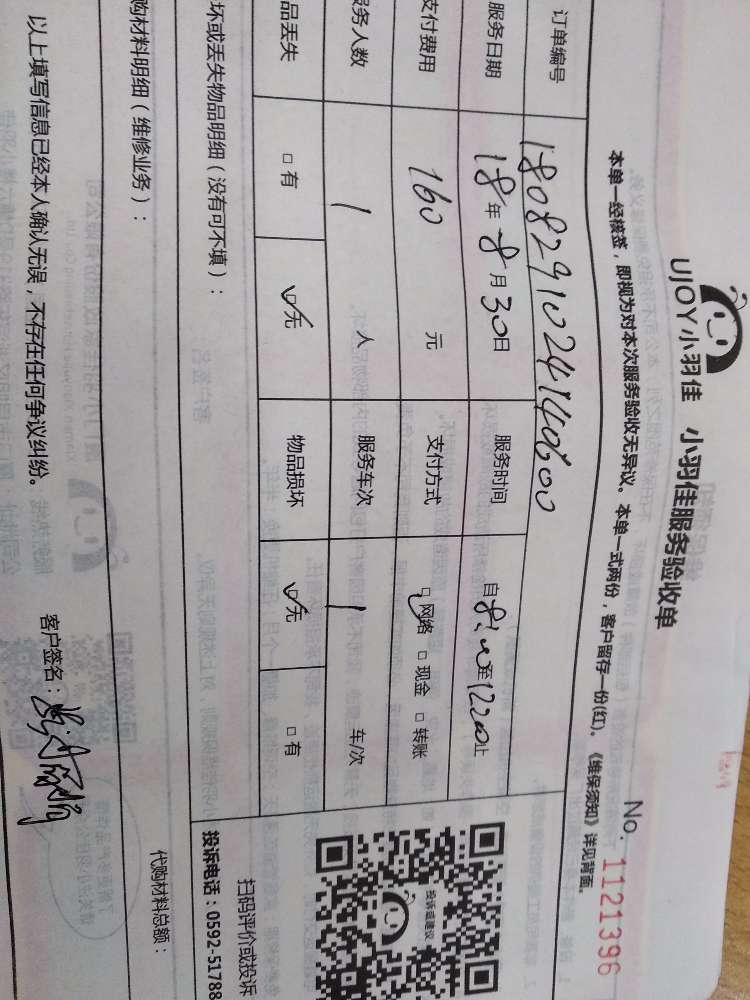 UJOY小羽佳 小羽佳服务验收单
No. 1121396
本单一经核签，即视为对本次服务验收无异议。本单一式两份，客户留存一份(红)。《维保须知》详见背面。
订单编号 1808291024140600
服务日期 18年8月30日 服务时间 自8:00至1200止
支付费用 160 元 支付方式 网络 现金 转账
服务人数 1 人 服务车次 1 车/次
品丢失 有 无 物品损坏 无 有
坏或丢失物品明细（没有可不填）：
购材料明细（维修业务）：
代购材料总额：
以上填写信息已经本人确认无误，不存在任何争议纠纷。
客户签名：
投诉或建议
扫码评价或投诉
投诉电话：0592-51788